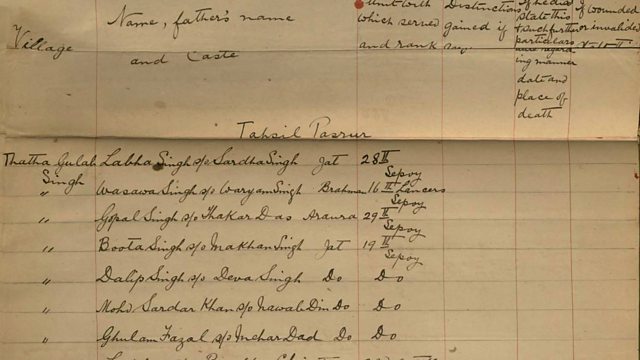 Village
Name, father's name
and Caste
Unit with
which served
and rank
Distinction
gained if
any.
If dead
state this
& such further
particulars
ing manner
date and
place of
death
If wounded
or invalided
Tahsil Pasrur
Thatha Gulab Singh Labha Singh s/o Sardha Singh Jat 28th Sepoy
" Wasawa Singh s/o Waryam Singh Brahman 16th Lancers Sepoy
" Gopal Singh s/o Thakar Das Araura 29th Sepoy
" Boota Singh s/o Makhan Singh Jat 19th Sepoy
" Dalip Singh s/o Deva Singh Do Do
" Mohd Sardar Khan s/o Nawab Din Do Do
" Ghulam Fazal s/o Mehar Dad Do Do